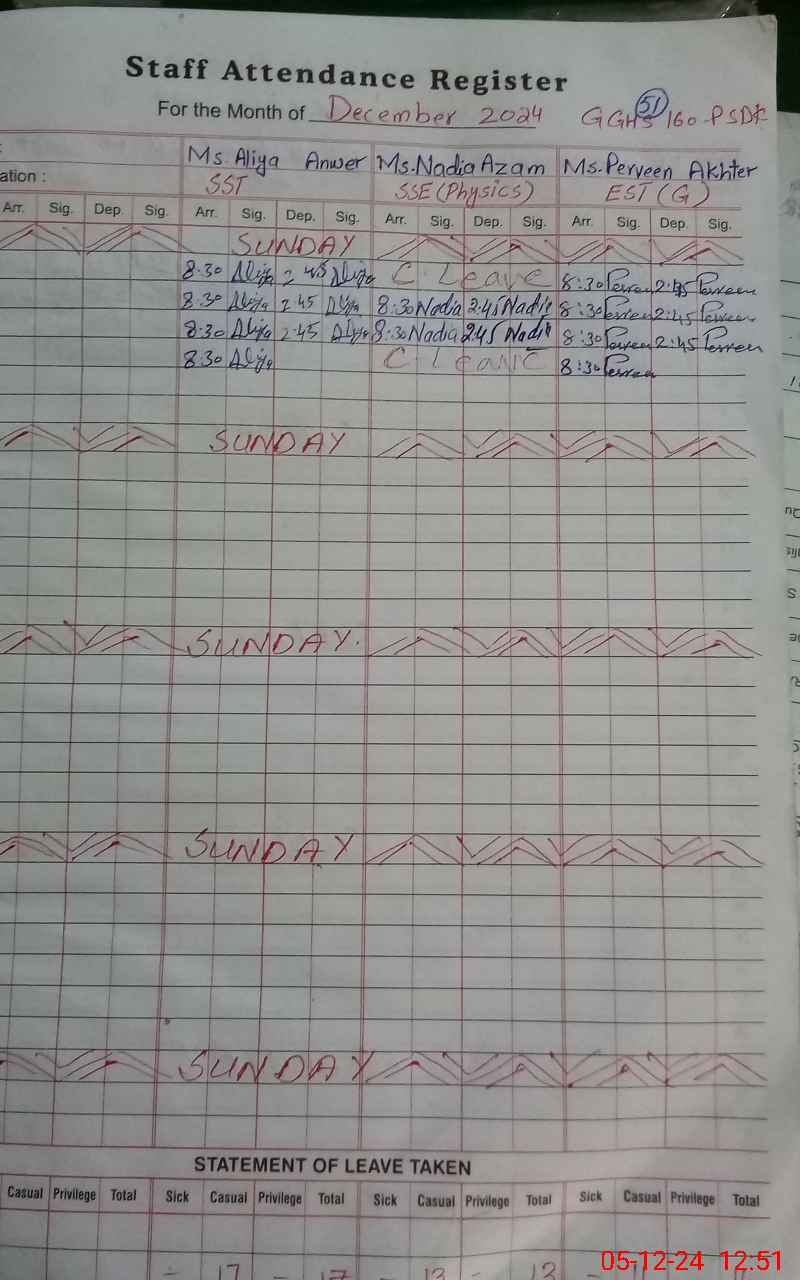 Staff Attendance Register
For the Month of December 2024 GGHS 160-PSDK
51
:
Ms. Aliya Anwer Ms. Nadia Azam Ms. Perveen Akhter
ation :
SST SSE (Physics) EST (G)
Arr. Sig. Dep. Sig. Arr. Sig. Dep. Sig. Arr. Sig. Dep. Sig. Arr. Sig. Dep. Sig.
SUNDAY
8:30 Aliya 2 45 Aliya C. Leave 8:30 Perveen 2:45 Perveen
8:30 Aliya 2:45 Aliya 8:30 Nadia 2:45 Nadia 8:30 Perveen 2:45 Perveen
8:30 Aliya 2:45 Aliya 8:30 Nadia 2:45 Nadia 8:30 Perveen 2:45 Perveen
8:30 Aliya C. Leave 8:30 Perveen
SUNDAY
SUNDAY.
SUNDAY
SUNDAY
STATEMENT OF LEAVE TAKEN
Casual Privilege Total Sick Casual Privilege Total Sick Casual Privilege Total Sick Casual Privilege Total
- 17 - 17 - 13 - 13 -
05-12-24 12:51